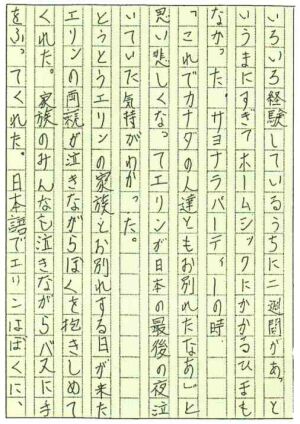 いろいろ経験しているうちに二週間があっと
いうまにすぎてホームシックにかかるひまも
なかった。サヨナラパーティーの時、
「これでカナダの人達ともお別れだなあ」と
思い悲しくなってエリンが日本の最後の夜泣
いていた気持がわかった。
とうとうエリンの家族とお別れする日が来た
エリンの両親が泣きながらぼくを抱きしめて
くれた。家族のみんなも泣きながらバスに手
をふってくれた。日本語でエリンはぼくに、